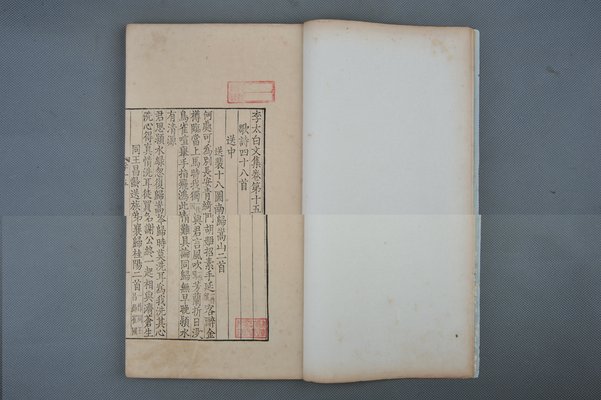 李太白文集卷第十五
歌詩四十八首
送中
送裴十八圖南歸嵩山二首
何處可為別長安青綺門胡姬招素手延客醉金
樽臨當上馬時我獨與君言風吹芳蘭折日沒
鳥雀喧舉手指飛鴻此情難具論同歸無早晚潁水
有清源
君思潁水綠忽復歸嵩岑歸時莫洗耳為我洗其心
洗心得真情洗耳徒買名謝公終一起相與濟蒼生
同王昌齡送族弟襄歸桂陽二首